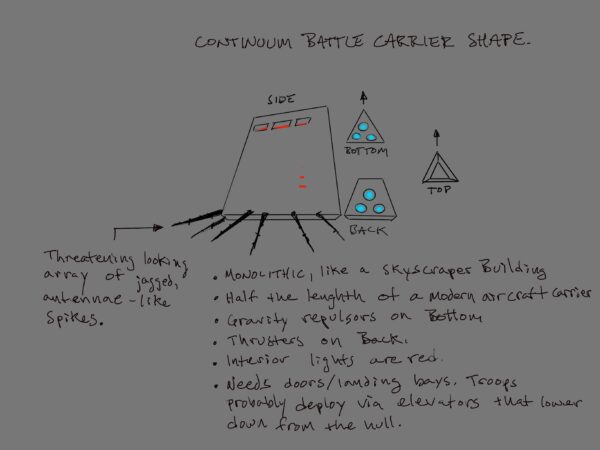 CONTINUUM BATTLE CARRIER SHAPE.
SIDE
BOTTOM
TOP
BACK
Threatening looking
array of jagged,
antennae-like
spikes.
• MONOLITHIC, like a skyscraper Building
• Half the lenghth of a modern aircraft carrier
• Gravity repulsors on Bottom
• Thrusters on Back.
• Interior lights are red.
• Needs doors/landing bays. Troops
probably deploy via elevators that lower
down from the hull.